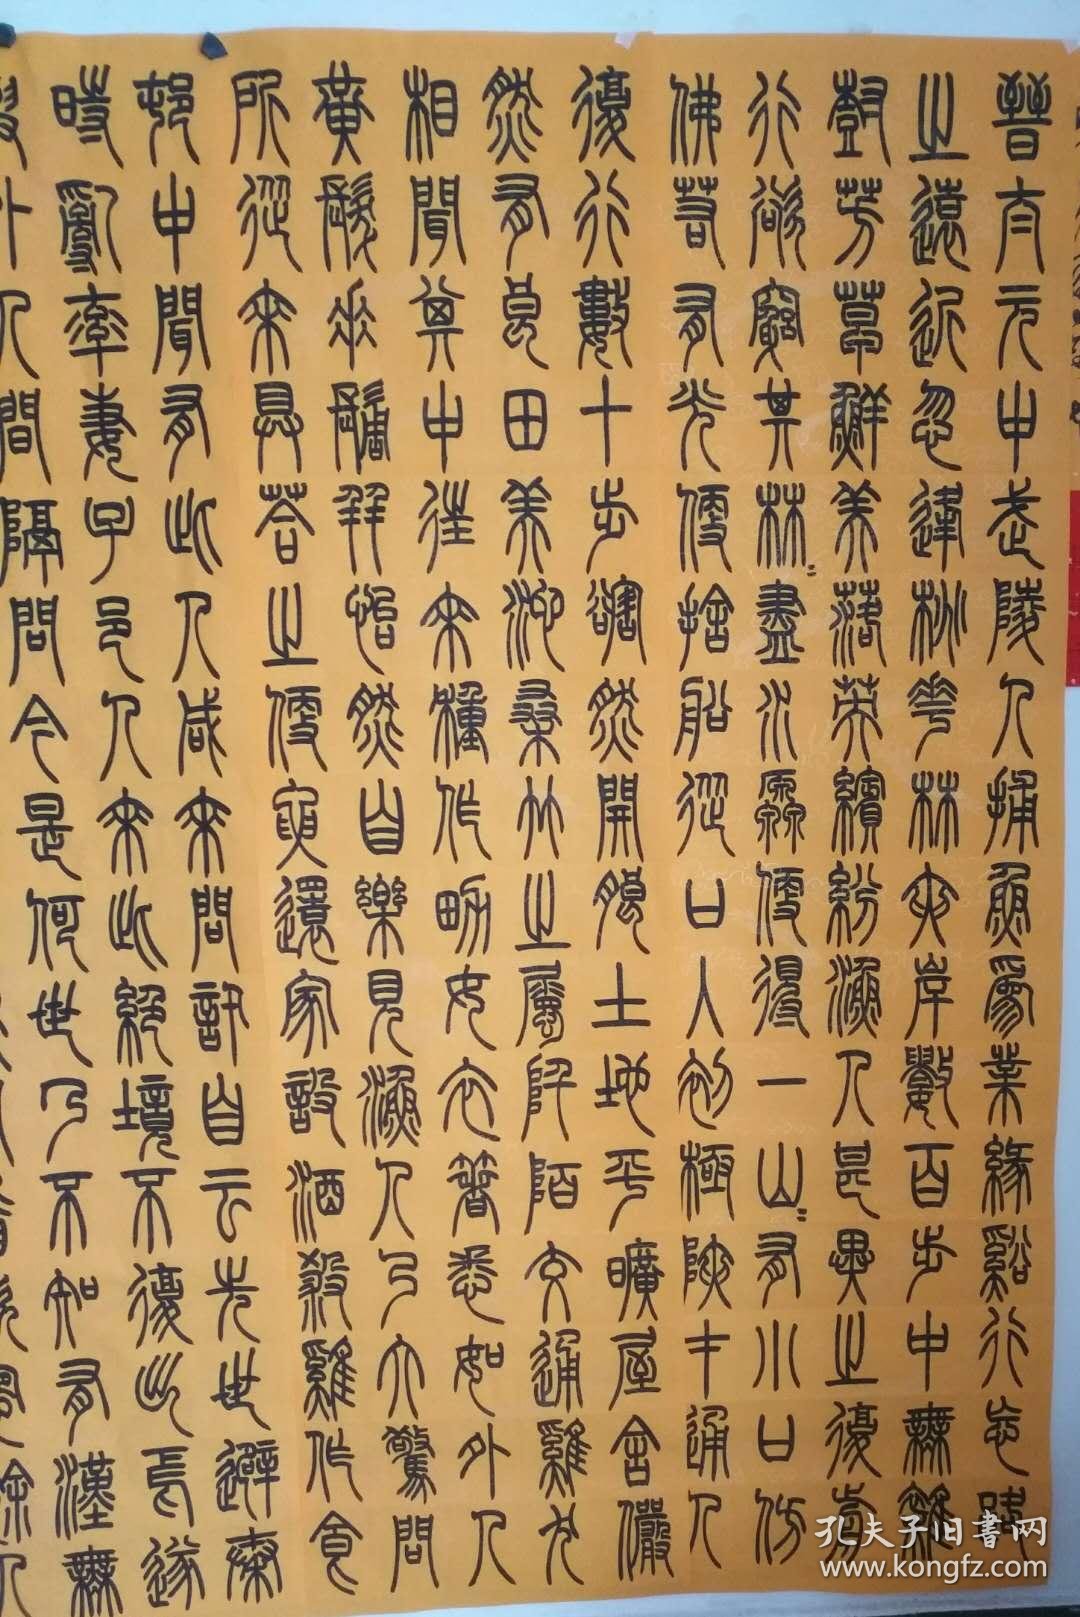 晉太元中武陵人捕魚爲業緣谿行忘路
之遠近忽逢桃花林夾岸數百步中無雜
樹芳草鮮美落英繽紛漁人甚異之復前
行欲窮其林〻盡水源便得一山〻有小口仿
佛若有光便捨船從口入初極陝才通人
復行數十步豁然開朗土地平曠屋舍儼
然有良田美池桑竹之屬阡陌交通雞犬
相聞其中往來種作男女衣著悉如外人
黃髮垂髫并怡然自樂見漁人乃大驚問
所從來具荅之便要還家設酒殺雞作食
邨中聞有此人咸來問訊自云先世避秦
時亂率妻子邑人來此絕境不復出焉遂
外人間隔問今是何世乃不知有漢無
孔夫子旧书网
www.kongfz.com